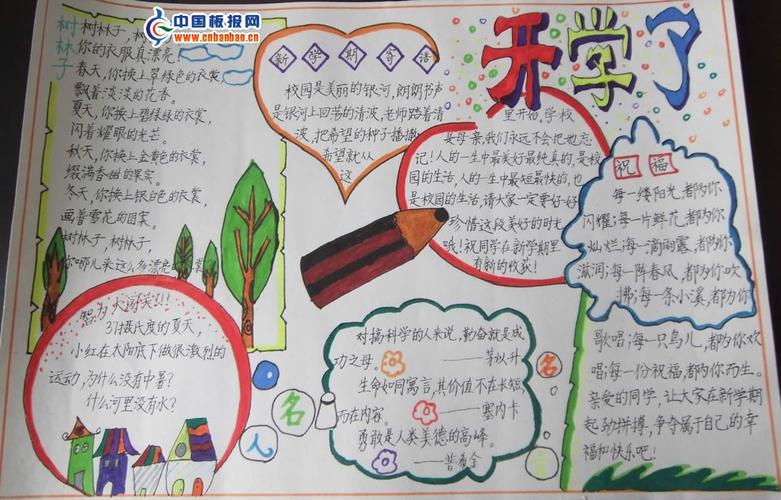 中国板报网
www.cnbanbao.cn
开学了
树林子
树林子,树林子,
你的衣服真漂亮!
春天,你换上翠绿色的衣裳,
飘着淡淡的花香。
夏天,你换上碧绿绿的衣裳,
闪着耀眼的光芒。
秋天,你换上金艳色的衣裳,
缀满香甜的果实。
冬天,你换上银白色的衣裳,
画着雪花的图案。
树林子,树林子,
你哪儿来这么多漂亮的衣裳
新学期寄语
校园是美丽的银河,朗朗书声
是银河上回荡的清波,老师踏着清
波,把希望的种子播撒,
希望就从
这
里开始,学校
是母亲,我们永远不会把她忘
记!人的一生中最美好最纯真的,是校
园的生活,人的一生中最短最快的,也
是校园的生活,请大家一定要好好
珍惜这段美好的时光
哦!祝同学在新学期里
有新的收获!
祝福
每一缕阳光,都为你
闪耀;每一片鲜花,都为你
灿烂;每一滴雨露,都为你
滋润;每一阵春风,都为你吹
拂;每一条小溪,都为你
歌唱;每一只鸟儿,都为你欢
唱;每一份祝福,都为你而生。
亲爱的同学,让大家在新学期
起劲拼搏,争夺属于自己的幸
福和快乐吧!
智力火闪关!!!
37摄氏度的夏天,
小红在太阳底下做很激烈的
运动,为什么没有中暑?
什么河里没有水?
名人名言
对搞科学的人来说,勤奋就是成
功之母。
——茅以升
生命如同寓言,其价值不在长短,
而在内容。
——塞内卡
勇敢是人类美德的高峰。
——普希金